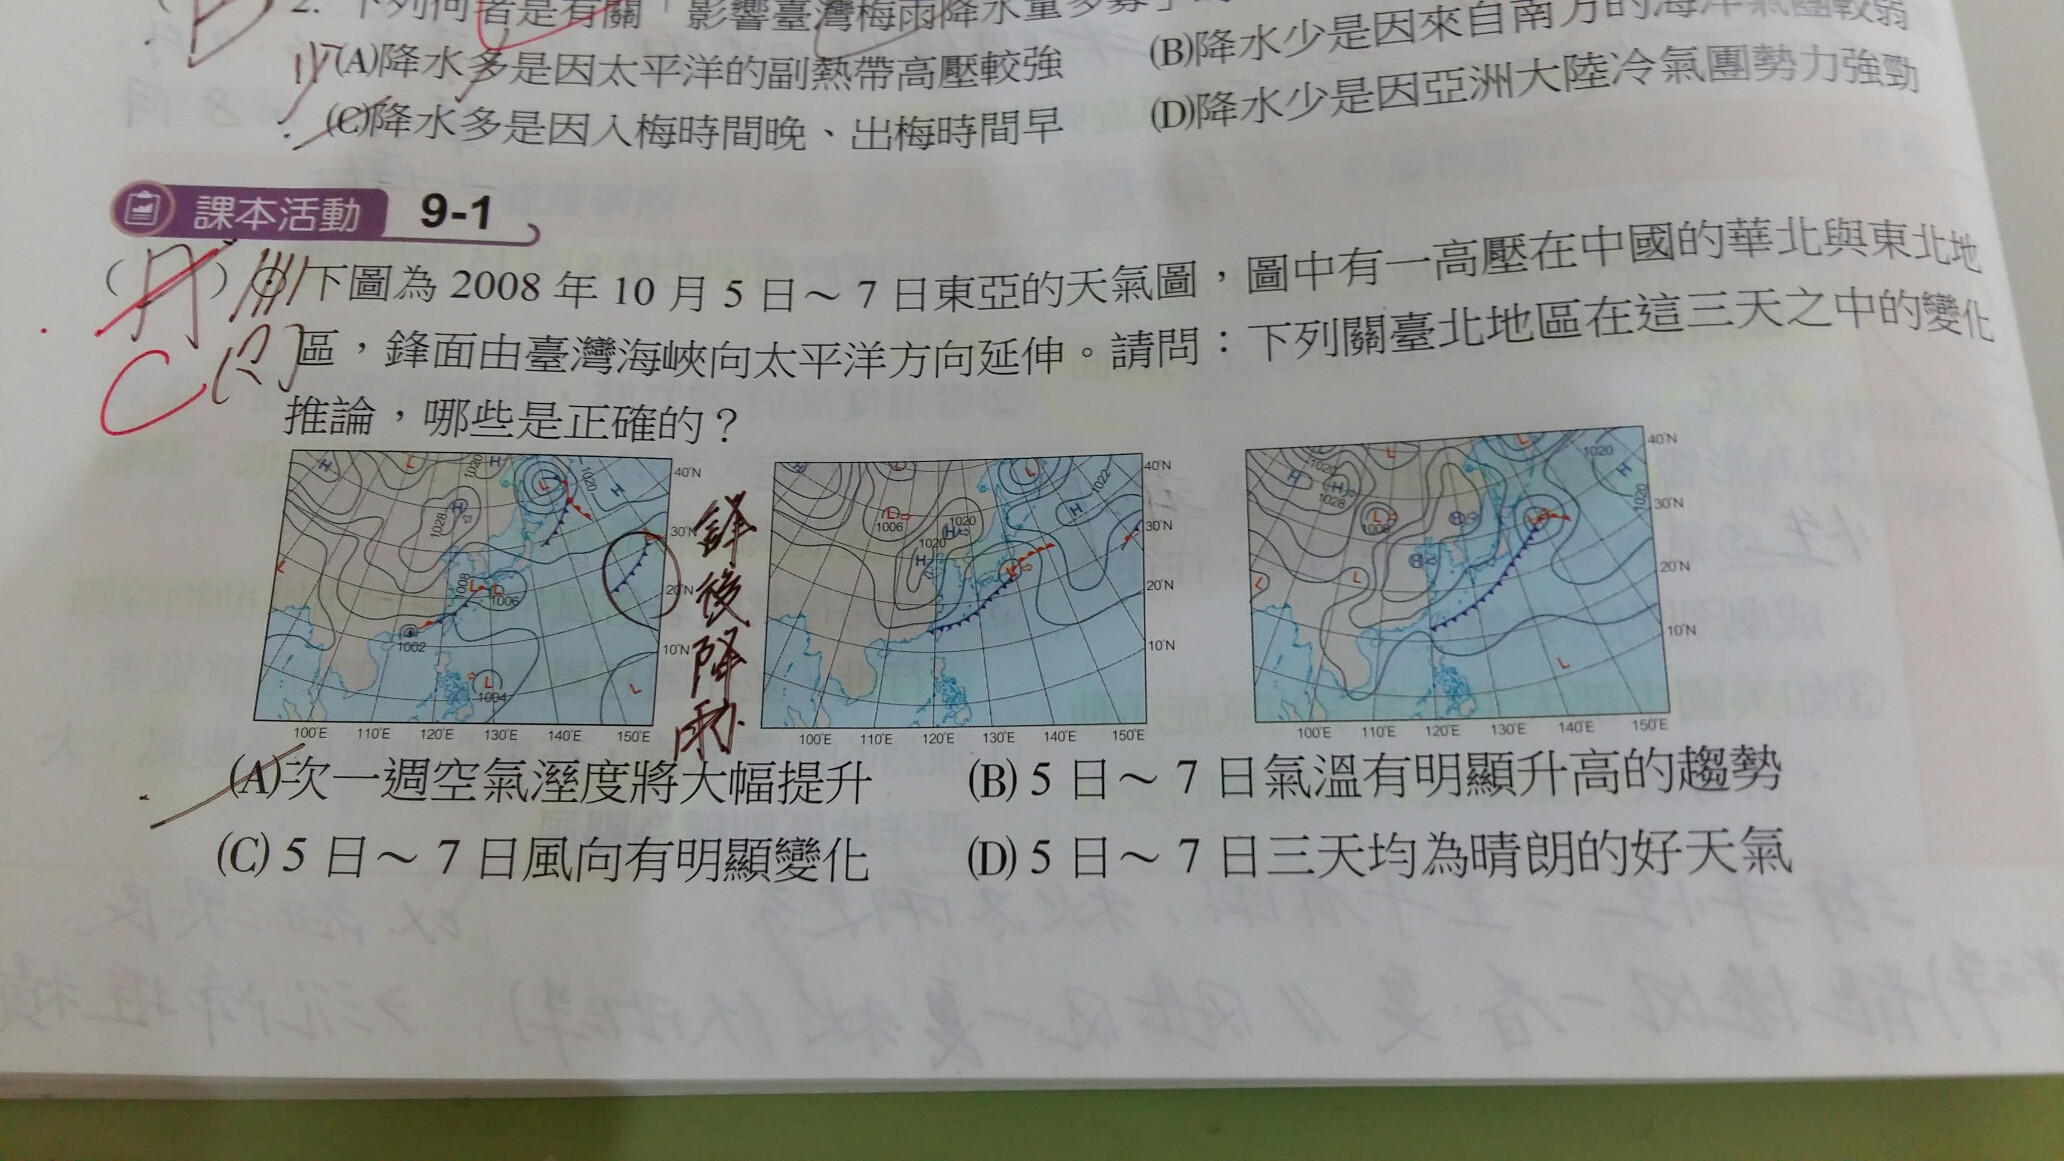 2. 下列何者是有關「影響臺灣梅雨降水量多寡」
(A)降水多是因太平洋的副熱帶高壓較強
(B)降水少是因來自南方的海洋氣團較弱
(C)降水多是因入梅時間晚、出梅時間早
(D)降水少是因亞洲大陸冷氣團勢力強勁
課本活動 9-1
下圖為 2008 年 10 月 5 日～ 7 日東亞的天氣圖，圖中有一高壓在中國的華北與東北地
C
區，鋒面由臺灣海峽向太平洋方向延伸。請問：下列關臺北地區在這三天之中的變化
推論，哪些是正確的？
40°N 30°N 20°N 10°N
1020 1028 1020 1008 1006 1002 1004
100°E 110°E 120°E 130°E 140°E 150°E
鋒後降雨
40°N 30°N 20°N 10°N
1006 1020 1020 1022
100°E 110°E 120°E 130°E 140°E 150°E
40°N 30°N 20°N 10°N
1020 1028 1020 1020
100°E 110°E 120°E 130°E 140°E 150°E
(A)次一週空氣溼度將大幅提升
(B) 5 日～ 7 日氣溫有明顯升高的趨勢
(C) 5 日～ 7 日風向有明顯變化
(D) 5 日～ 7 日三天均為晴朗的好天氣